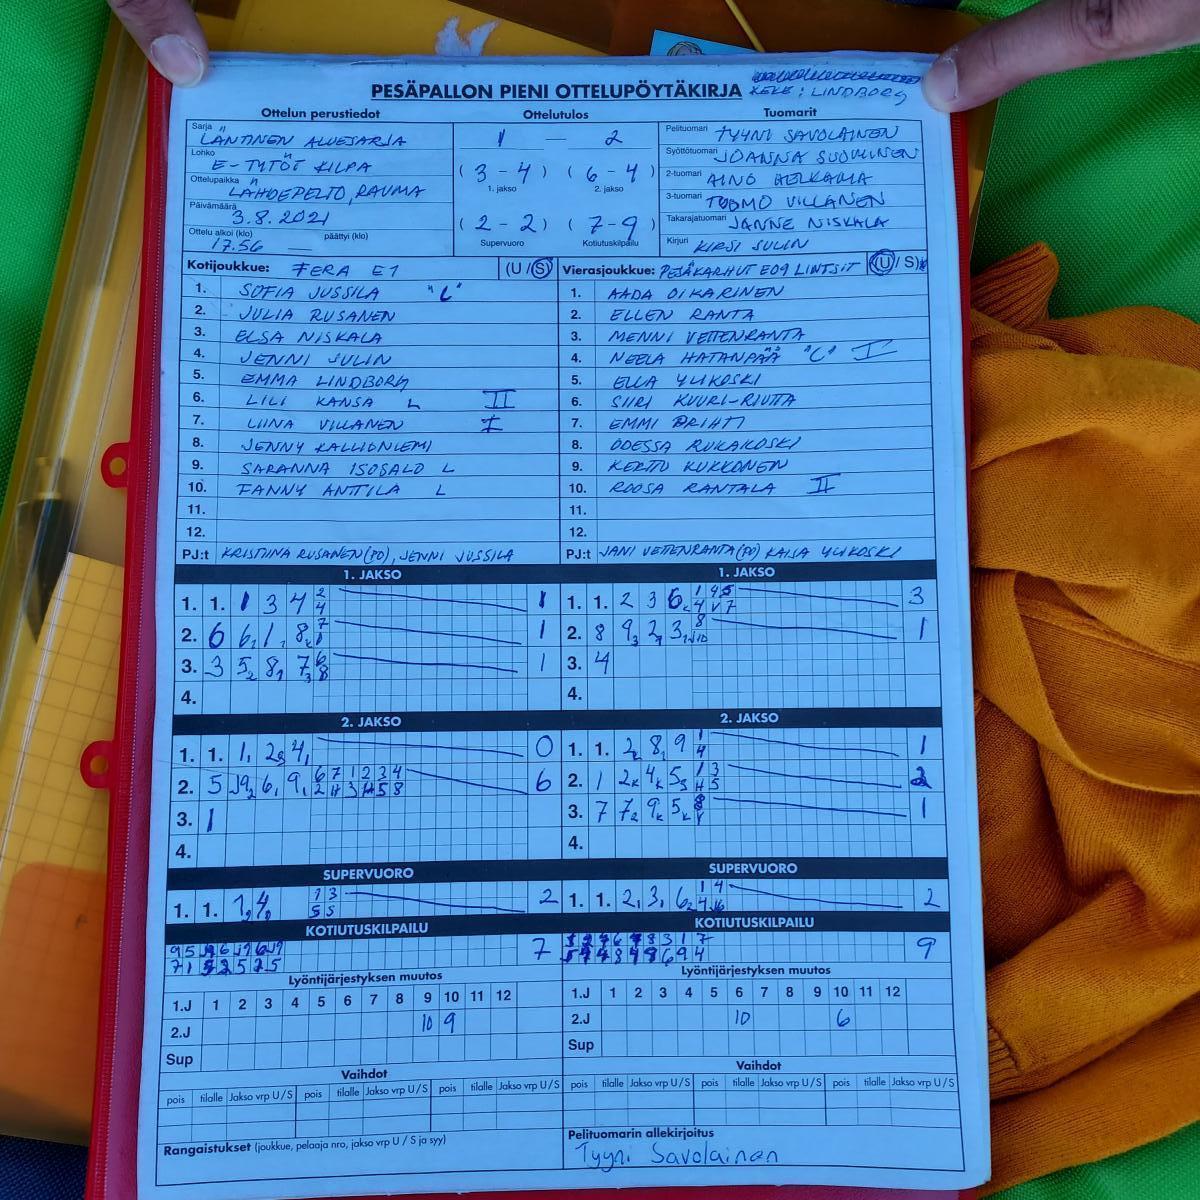 PESÄPALLON PIENI OTTELUPÖYTÄKIRJA
KEKE: LINDBORG
Ottelun perustiedot
Ottelutulos
Tuomarit
Sarja LÄNTINEN ALUESARJA
1 — 2
Pelituomari TYYNI SAVOLAINEN
Lohko E-TYTÖT KILPA
(3 - 4) (6 - 4)
1. jakso 2. jakso
Syöttötuomari JOANNA SUOMINEN
Ottelupaikka LÄHDEPELTO, RAUMA
2-tuomari AINO
Päivämäärä 3.8.2021
3-tuomari TUOMO VILLANEN
Ottelu alkoi (klo) 17.56 — päättyi (klo)
(2 - 2) (7 - 9)
Supervuoro Kotiutuskilpailu
Takarajatuomari JANNE NISKALA
Kirjuri KIRSI SULIN
Kotijoukkue: FERA E1 (U / S)
Vierasjoukkue: PESÄKARHUT E09 LINTSIT (U / S)
1. SOFIA JUSSILA "C"
2. JULIA RUSANEN
3. ELSA NISKALA
4. JENNI SULIN
5. EMMA LINDBORG
6. LILI KANSA L II
7. LIINA VILLANEN I
8. JENNY KALLIONIEMI
9. SARANNA ISOSALO L
10. FANNY ANTTILA L
11.
12.
PJ:t KRISTIINA RUSANEN (PO), JENNI JUSSILA
1. AADA OIKARINEN
2. ELLEN RANTA
3. MENNI VETTENRANTA
4. NEELA HATANPÄÄ "C" I
5. ELLA YLIKOSKI
6. SIIRI KUURI-RIUTTA
7. EMMI PRIHTI
8. ODESSA RUKAKOSKI
9. KERTTU KUKKONEN
10. ROOSA RANTALA II
11.
12.
PJ:t JANI VETTENRANTA (PO) KAISA YLIKOSKI
1. JAKSO
1. 1. 1 3 4 2 4 1
2. 6 6 1 8 7 1
3. 3 5 2 8 1 7 3 6 8 1
4.
1. JAKSO
1. 1. 2 3 6 1 4 5 3
2. 8 9 3 2 3 8 1
3. 4
4.
2. JAKSO
1. 1. 1 2 4 0
2. 5 6 9 6 7 1 2 3 4 6
3. 1
4.
2. JAKSO
1. 1. 2 8 9 1 4 1
2. 1 2 4 5 1 3 2
3. 7 7 2 9 5 8 1
4.
SUPERVUORO
1. 1. 1 4 1 3 5 5 2
SUPERVUORO
1. 1. 2 3 6 1 4 2
KOTIUTUSKILPAILU
7
KOTIUTUSKILPAILU
9
Lyöntijärjestyksen muutos
1.J 1 2 3 4 5 6 7 8 9 10 11 12
2.J 10 9
Sup
Lyöntijärjestyksen muutos
1.J 1 2 3 4 5 6 7 8 9 10 11 12
2.J 10 6
Sup
Vaihdot
pois tilalle Jakso vrp U / S pois tilalle Jakso vrp U / S pois tilalle Jakso vrp U / S
Vaihdot
pois tilalle Jakso vrp U / S pois tilalle Jakso vrp U / S pois tilalle Jakso vrp U / S
Rangaistukset (joukkue, pelaaja nro, jakso vrp U / S ja syy)
Pelituomarin allekirjoitus
Tyyni Savolainen